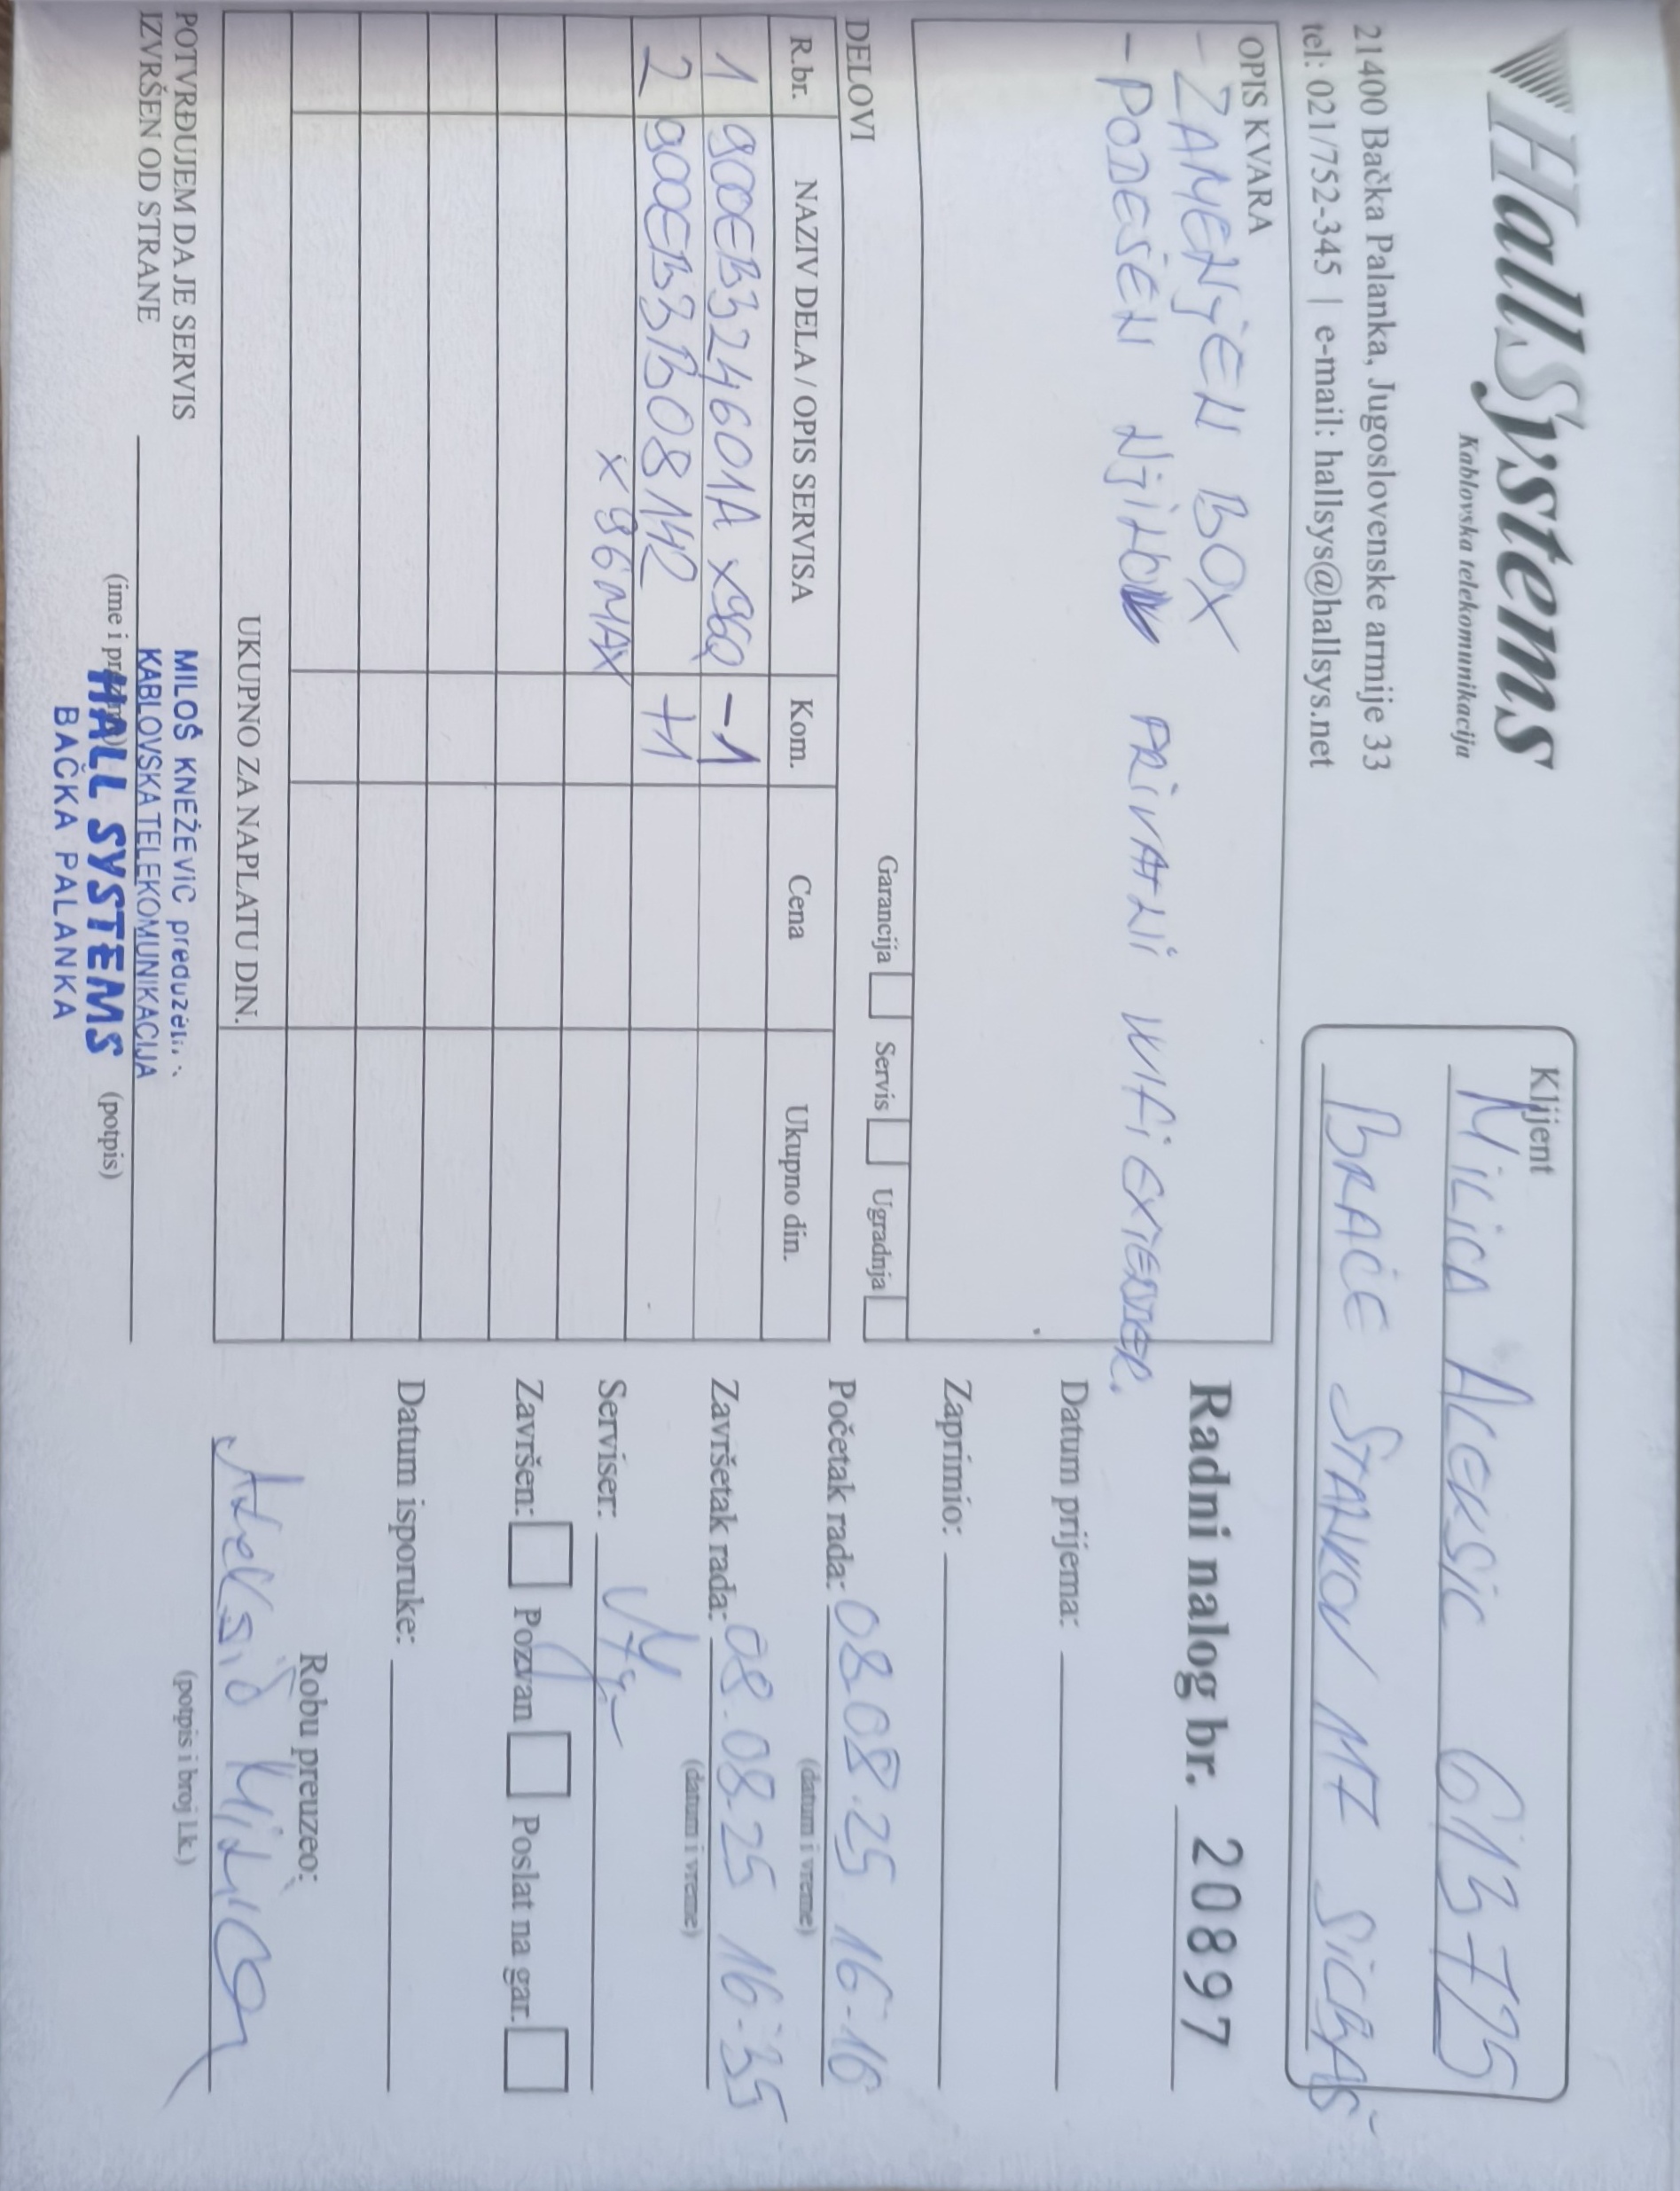 HallSystems
Kablovska telekomunikacija
21400 Bačka Palanka, Jugoslovenske armije 33
tel: 021/752-345 | e-mail: hallsys@hallsys.net
Klijent
MILICA ALEKSIC 613725
BRAĆE STANKOV MZ SILBAŠ
OPIS KVARA
- ZAMENJEN BOX
- PODEŠEN NJIHOV PRIVATNI WIFI EXTENDER.
Radni nalog br. 20897
Datum prijema:
Zaprimio:
Početak rada: 08.08.25 16-16
(datum i vreme)
Završetak rada: 08.08.25 16-35
(datum i vreme)
Serviser:
Završen: Pozvan Poslat na gar.
Datum isporuke:
Robu preuzeo:
Aleksić Milica
(potpis i broj l.k.)
Garancija Servis Ugradnja
DELOVI
R.br. NAZIV DELA / OPIS SERVISA Kom. Cena Ukupno din.
1 900EB324601A X96Q -1
2 900EB31308142 +1
X96MAX
UKUPNO ZA NAPLATU DIN.
POTVRĐUJEM DA JE SERVIS
IZVRŠEN OD STRANE
(ime i prezime) (potpis)
MILOŠ KNEŽEVIĆ
KABLOVSKA TELEKOMUNIKACIJA
HALL SYSTEMS
BAČKA PALANKA